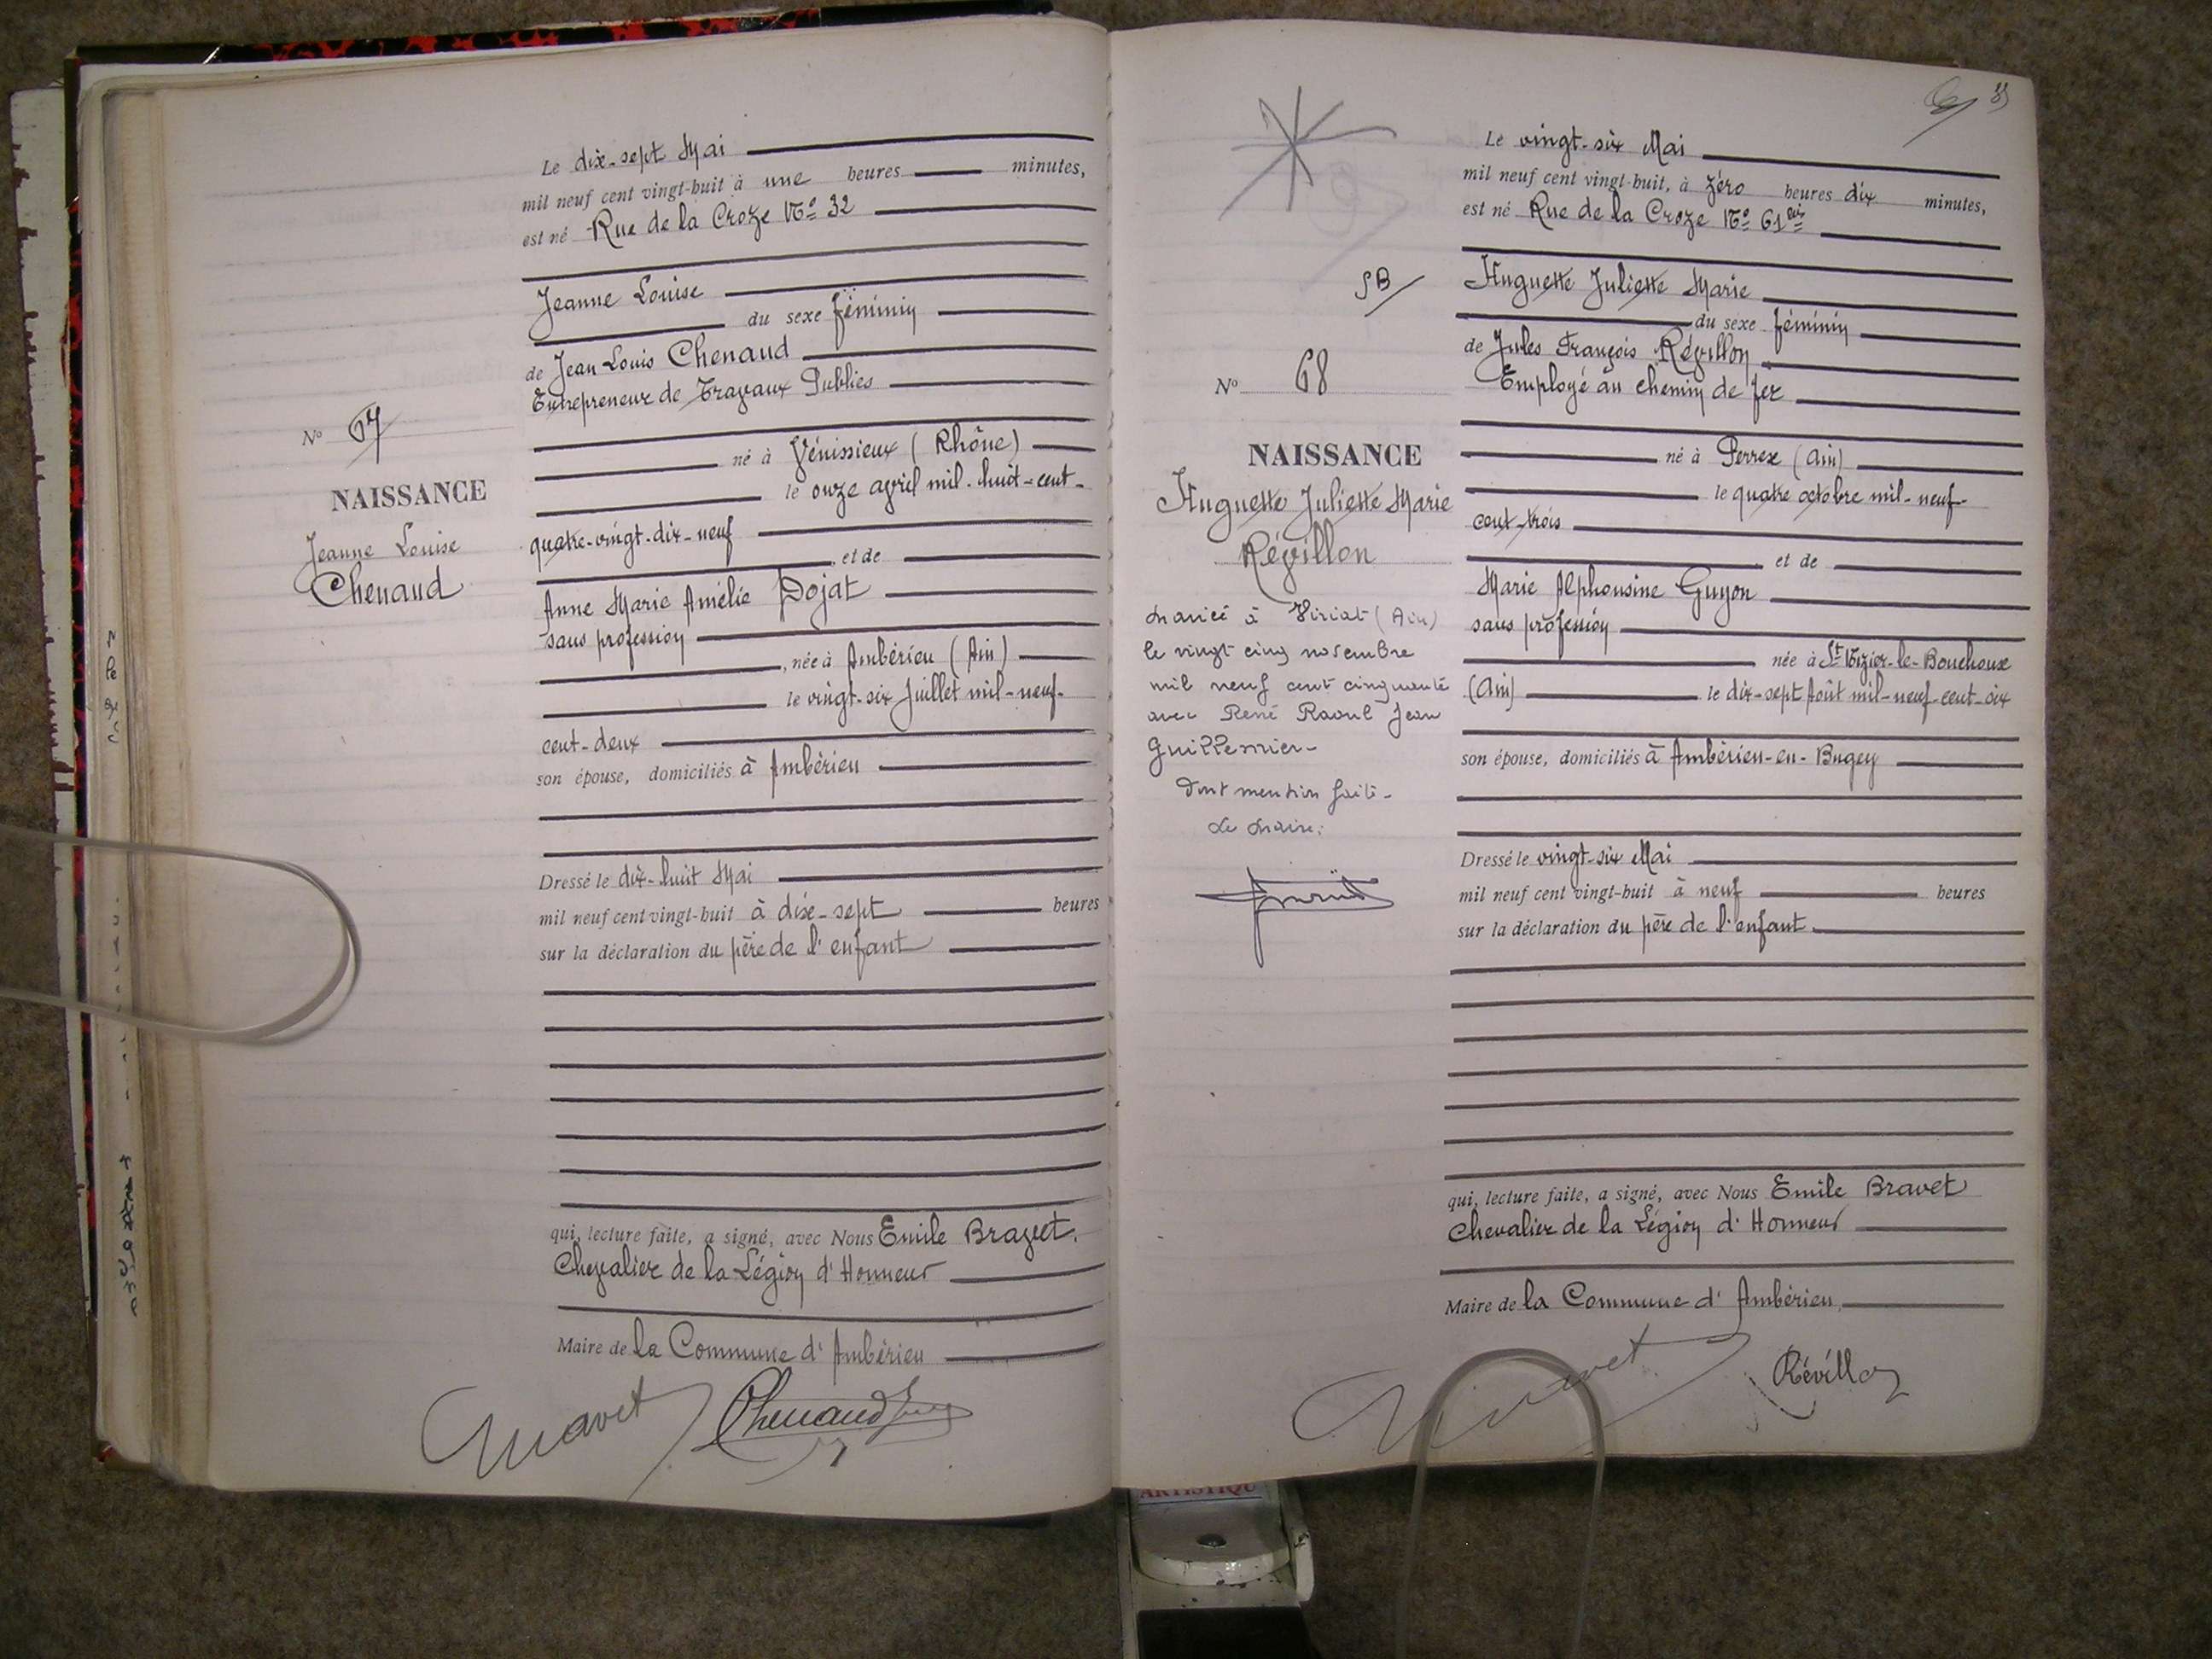 Le dix-sept Mai
mil neuf cent vingt-huit à une heures minutes,
est né Rue de la Croze No 32
Jeanne Louise
du sexe féminin
de Jean Louis Chenaud
Entrepreneur de Travaux Publics
né à Vénissieux (Rhône)
le onze avril mil-huit-cent-
quatre-vingt-dix-neuf
et de
Anne Marie Amélie Dojat
sans profession
, née à Ambérieu (Ain)
le vingt-six Juillet mil-neuf-
cent-deux
son épouse, domiciliés à Ambérieu
Dressé le dix-huit Mai
mil neuf cent vingt-huit à dix-sept heures
sur la déclaration du père de l'enfant
qui, lecture faite, a signé, avec Nous Emile Bravet.
Chevalier de la Légion d'Honneur
Maire de la Commune d'Ambérieu
Bravet Chenaud
No 67
NAISSANCE
Jeanne Louise
Chenaud
Le vingt-six Mai
mil neuf cent vingt-huit, à zéro heures dix minutes,
est né Rue de la Croze No 61 bis
Huguette Juliette Marie
du sexe féminin
de Jules François Révillon
Employé au chemin de fer
né à Perrex (Ain)
le quatre octobre mil-neuf-
cent-trois
et de
Marie Alphonsine Guyon
sans profession
née à St Nizier-le-Bouchoux
(Ain) le dix-sept Août mil-neuf-cent-six
son épouse, domiciliés à Ambérieu-en-Bugey
Dressé le vingt-six Mai
mil neuf cent vingt-huit à neuf heures
sur la déclaration du père de l'enfant
qui, lecture faite, a signé, avec Nous Emile Bravet
Chevalier de la Légion d'Honneur
Maire de la Commune d'Ambérieu
Bravet Révillon
SB
No 68
NAISSANCE
Huguette Juliette Marie
Révillon
Marié à Viriat (Ain)
le vingt cinq novembre
mil neuf cent cinquante
avec René Raoul Jean
Guillermier-
Dont mention faite-
Le Maire:
ARTISTIQU